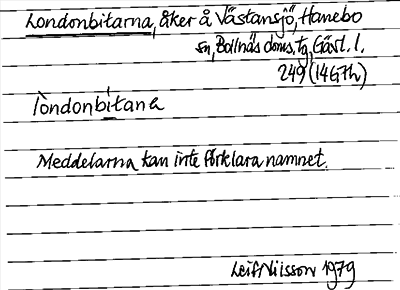 Londonbitarna, åker å Västansjö, Hanebo
sn, Bollnäs doms. tg, Gävl. l.
249 (14G7h)
lòndonbítana
Meddelarna kan inte förklara namnet.
Leif Nilsson 1979